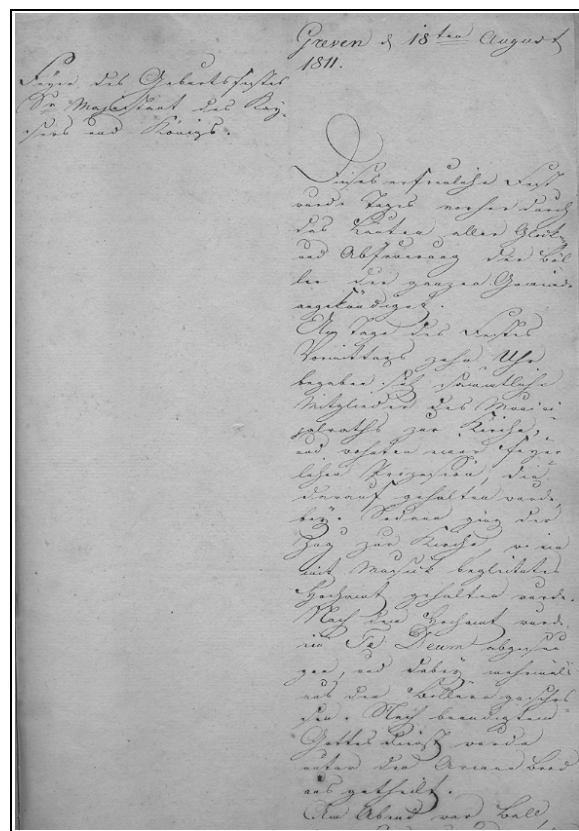 Greven d 18ten August
1811.
Feyer des Geburtsfestes
Sr Majestaet des Kay-
sers und Königs.
Dieses erfreuliche Fest
wurde Tages vorher durch
das Läuten aller Glocken
und Abfeuerung der Böl-
ler der ganzen Gemeinde
angekündiget.
Am Tage des Festes
Vormittags zehn Uhr
begaben sich sämmtliche
Mitglieder des Munici-
palraths zur Kirche,
und wohnten einer feyer-
lichen Prozession, die
darauf gehalten wurde,
bey. Sodann ging der
Zug zur Kirche, wo ein
mit Musick begleitetes
Hochamt gehalten wurde.
Nach dem Hochamt wurde
ein Te Deum abgesun-
gen, und dabey mehrmals
aus den Böllern geschos-
sen. Nach beendigtem
Gottesdienst wurde
unter den Armen Brod
ausgetheilt.
Am Abend war Ball,